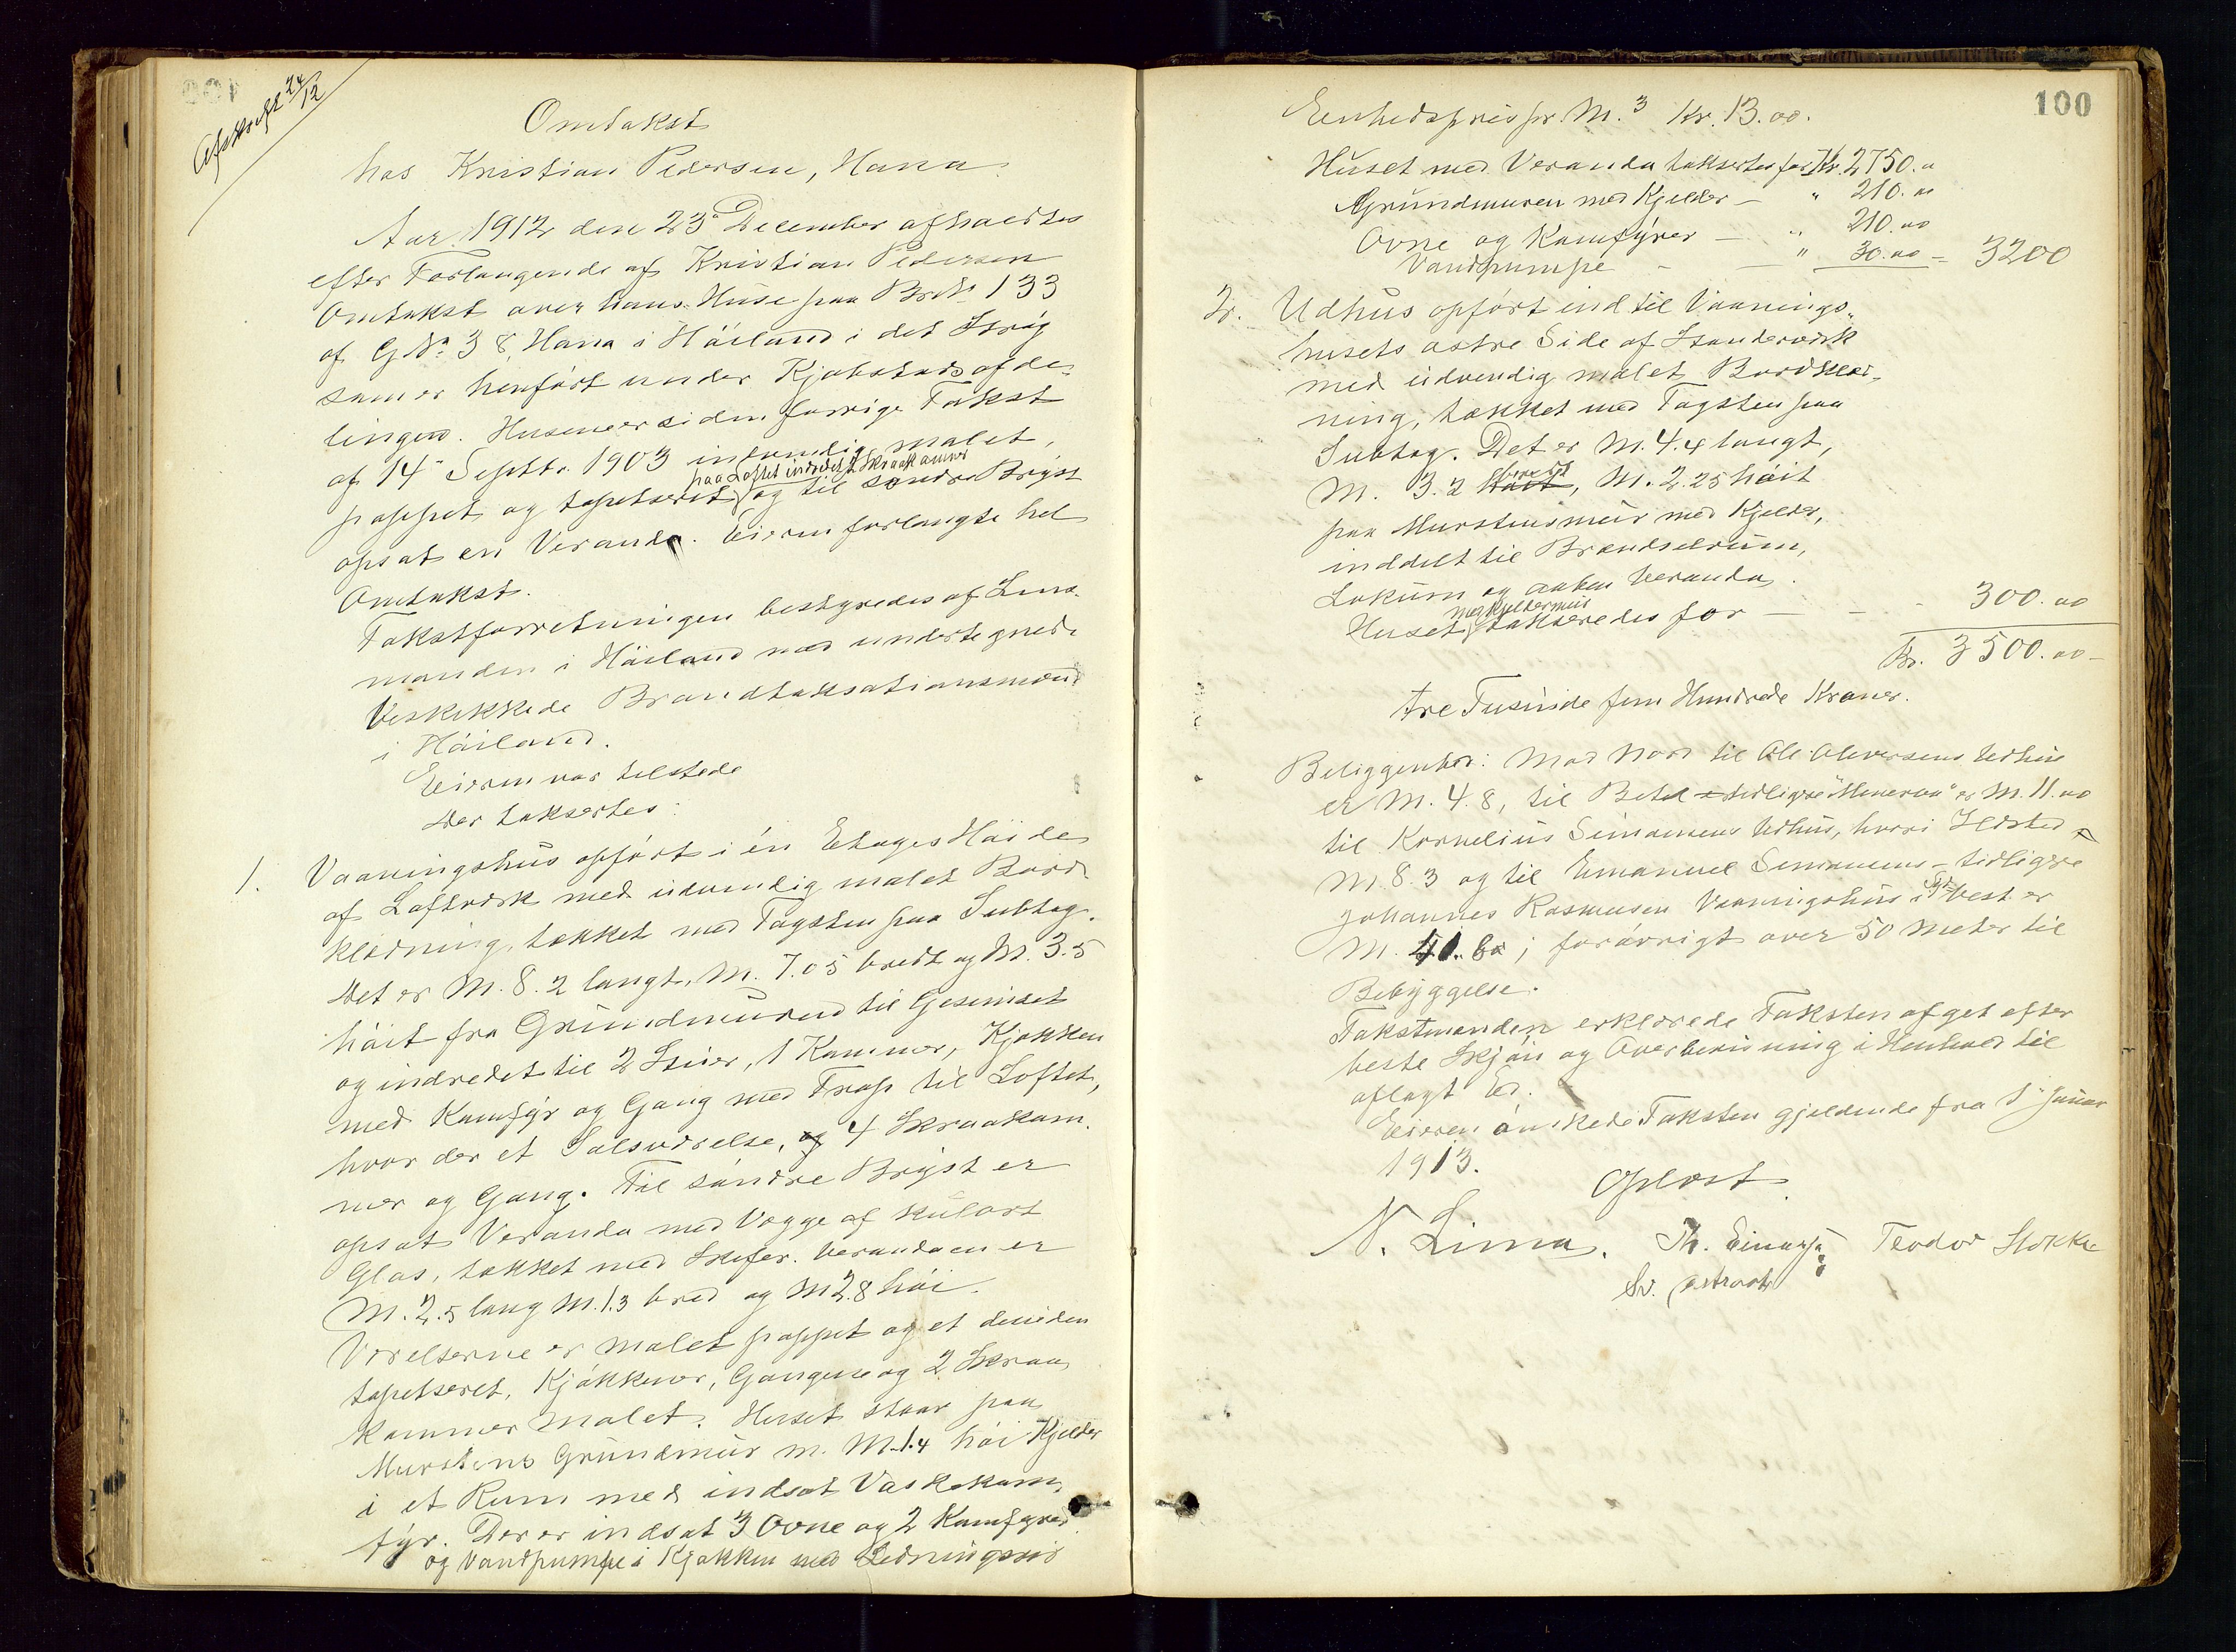 Afskrift 24/12
Omtakst
hos Kristian Pedersen, Hana.
Aar 1912 den 23de December afholdtes
efter Forlangende af Kristian Pedersen
Omtakst over hans Huse paa Br.No 133
af G.No 38, Hana i Höiland i det Strög
som er henfört under Kjøbstadsafde-
lingen. Husene er siden forrige Takst
af 14de Septbr. 1903 indvendig malet,
paa Loftet indredet 2 Skraakamre
pappet og tapetseret og til søndre Bryst
opsat en Veranda. Eieren forlangte hel
Omtakst.
Takstforretningen bestyredes af Lens-
manden i Höiland med undertegnede
beskikkede Brandtaksationsmænd
i Höiland.
Eieren var tilstede
Der taksertes:
1. Vaaningshus opfört i én Etages Höide
af Laftværk med udvendig malet Bord-
klædning, tækket med Tagsten paa Subtag.
Det er M. 8.2 langt, M. 7.05 bredt og M. 3.5
höit fra Grundmuren til Gesimset
og indredet til 2 Stuer, 1 Kammer, Kjøkken
med Komfyr og Gang med Trap til Loftet,
hvor der et Salsværelse, og 4 Skraakam-
mer og Gang. Til söndre Bryst er
opsat Veranda med Vægge af kulört
Glas, tækket med Skifer. Verandaen er
M. 2.5 lang M. 1.3 bred og M 2.8 höi.
Værelserne er malet pappet og et deriden
tapetseret, Kjökkener, Gangene og 2 Skraa-
kammer malet. Huset staar paa
Murstens Grundmur m. M. 1.4 höi Kjelder
i et Rum med indsat Vaskekom-
fyr. Der er indsat 3 Ovne og 2 Komfyrer
og Vandpumpe i Kjøkken med Ledningsrör
100
Eenhedspris pr. M.3 Kr. 13.00.
Huset med Veranda taksertes for Kr. 2750.00
Grundmuren med Kjelder - " 210.00
Ovne og Komfyrer - " 210.00
Vandpumpe - " 30.00 = 3200
2. Udhus opfört ind til Vaanings-
husets østre Side af Standerværk
med udvendig malet Bordklæd-
ning, tækket med Tagsten paa
Subtag. Det er M. 4.4 langt,
bredt
M. 3.2 höit, M. 2.25 höit
paa Murstensmur med Kjelder,
inddelt til Brændselrum,
Lokum og aaben Veranda.
med Kjeldermur
Huset takseredes for - - - 300.00
Kr. 3500.00
tre Tusinde fem Hundrede Kroner.
Beliggenhed: Mod Nord til Ole Olversens Udhus
er M. 4.8, til Betel - tidligre "Menerva" er M. 11.00
til Kornelius Simonsens Udhus, hvori Ildsted er
M. 8.3 og til Emanuel Simonsens - tidligre
Johannes Rasmusen Vaaningshus i Sydvest er
M. 41.60; forövrigt over 50 Meter til
Bebyggelse.
Takstmanden erklærede Taksten afget efter
beste Skjön og Overbevisning i Henhold til
aflagt Ed.
Eieren önskede Taksten gjeldende fra 1ste Januar
1913.
Oplæst
N. Lima. Th. Einarsen Teodor Stokke